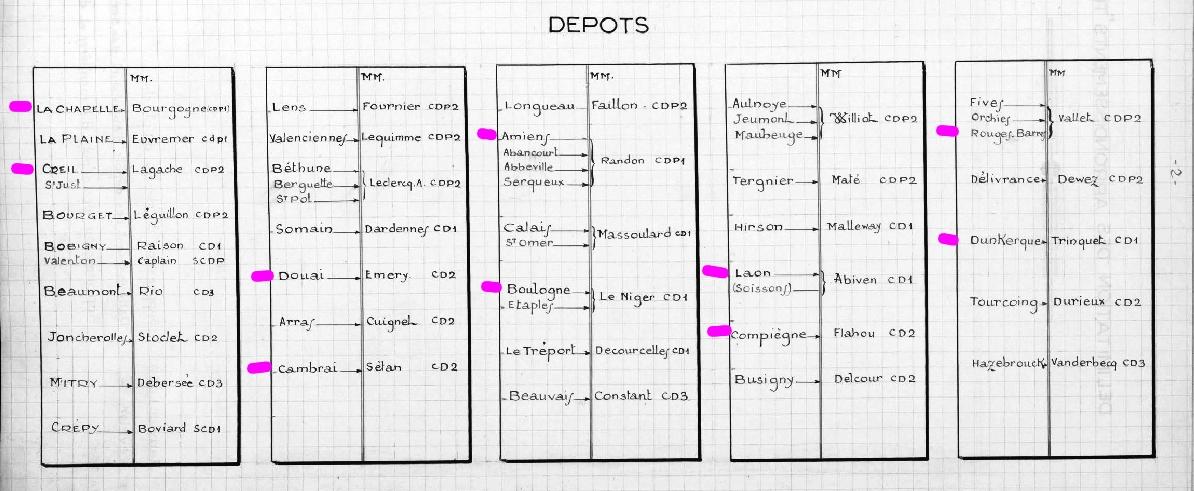 DEPOTS
MM.
LA CHAPELLE Bourgogne (CDP1)
LA PLAINE Euvremer cdp1
CREIL Lagache CDP2
St Just
BOURGET Léguillon CDP2
BOBIGNY Raison CD1
Valenton Caplain SCDP
Beaumont Rio CD3
Joncherolles Stoclet CD2
MITRY Debersée CD3
CRÉPY Boviard SCD1
MM.
Lens Fournier CDP2
Valenciennes Lequimme CDP2
Béthune
Berguette Leclercq.A. CDP2
St Pol
Somain Dardennes CD1
Douai Emery CD2
Arras Cuignet CD2
Cambrai Sélan CD2
MM.
Longueau Faillon . CDP2
Amiens
Abancourt Randon CDP1
Abbeville
Serqueux
Calais Massoulard CD1
St Omer
Boulogne Le Niger CD1
Etaples
Le Tréport Decourcelles CD1
Beauvais Constant CD3
MM
Aulnoye
Jeumont Williot CDP2
Maubeuge
Tergnier Maté CDP2
Hirson Malleway CD1
Laon Abiven CD1
(Soissons)
Compiègne Flahou CD2
Busigny Delcour CD2
MM
Fives
Orchies Vallet CDP2
Rouges.Barres
Délivrance Dewez CDP2
Dunkerque Trinquet CD1
Tourcoing Durieux CD2
Hazebrouck Vanderbecq CD3
-2-